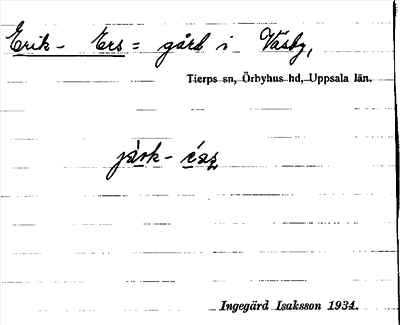 Erik- Ers = gård i Väsby,
Tierps sn, Örbyhus hd, Uppsala län.
Ingegärd Isaksson 1934.